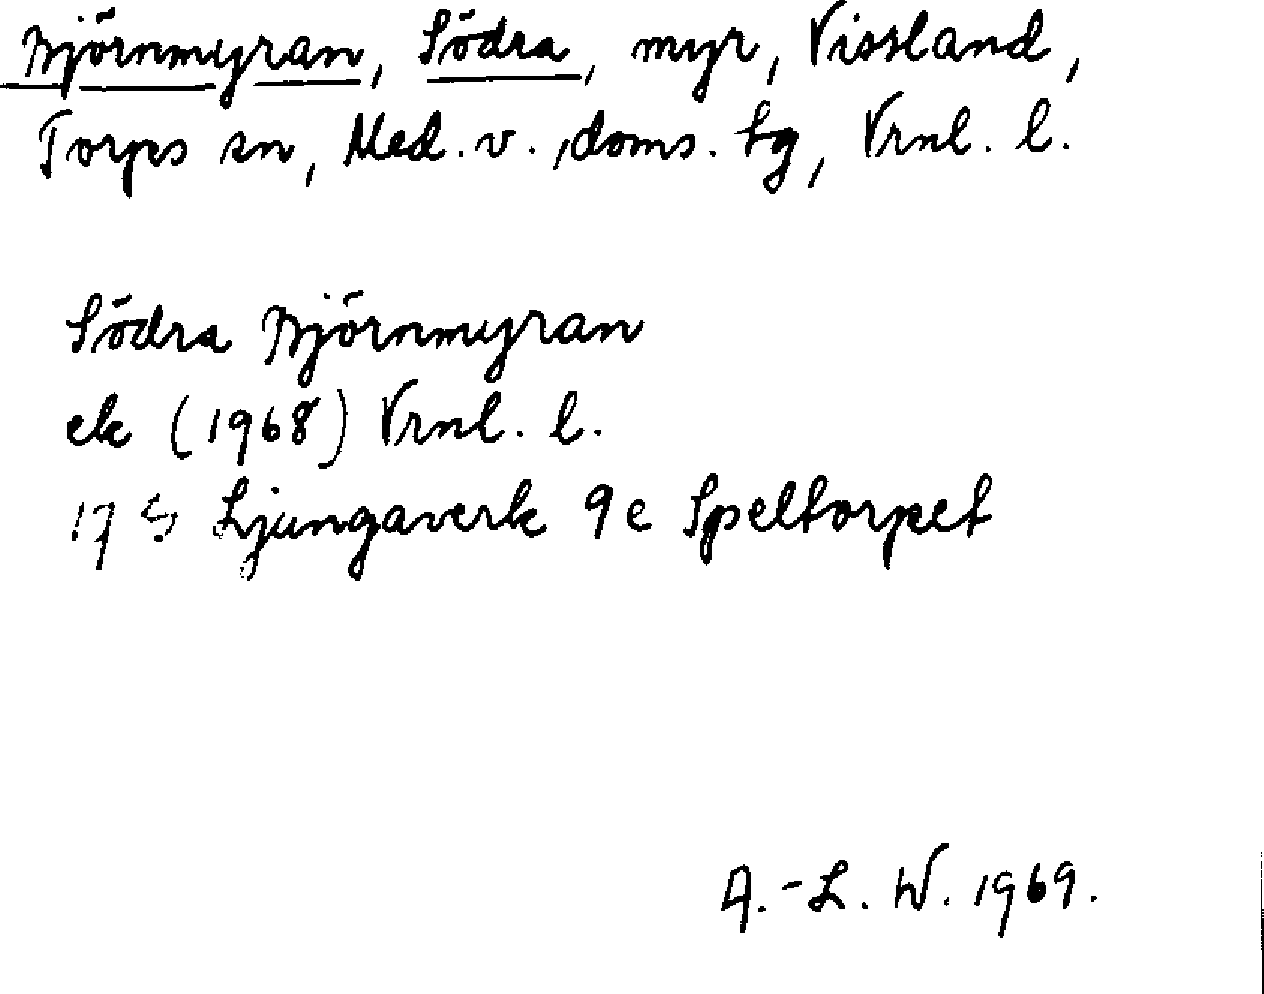 Björnmyran, Södra, myr, Vissland,
Torps sn, Med. v., doms. tg, Vrnl. l.
Södra Björnmyran
ek (1968) Vrnl. l.
17 G Ljungaverk 9e Speltorpet
A.-L. W. 1969.